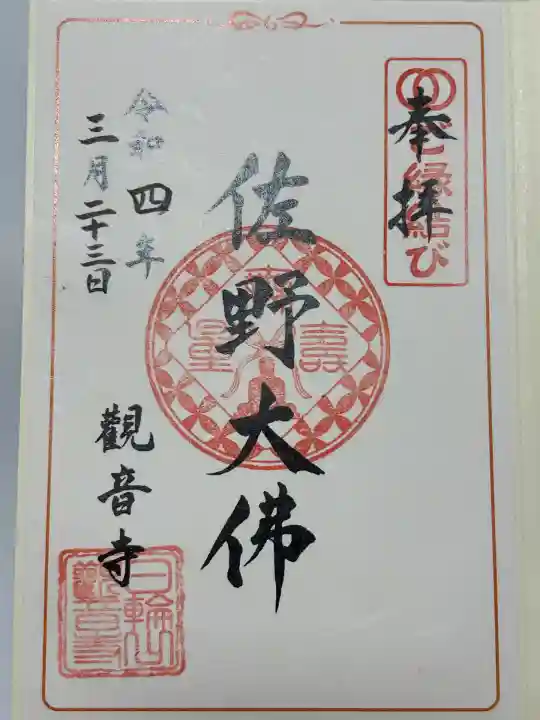 奉拝
ご縁結び
佐野大佛
令和四年
三月二十三日
觀音寺
日輪山
觀音寺